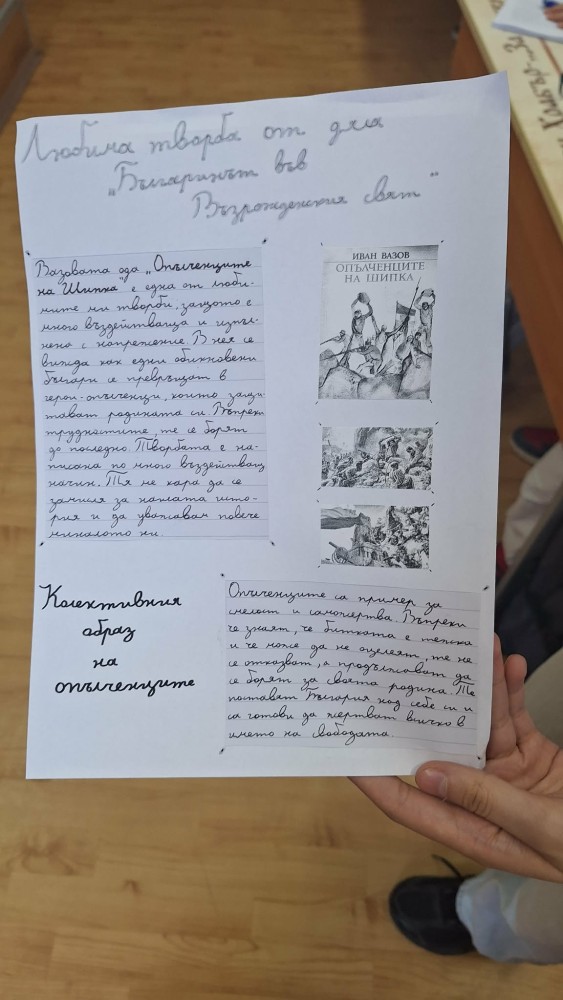 Любима творба от дяла
„Българинът във
Възрожденския свят"
Вазовата ода „Опълченците
на Шипка" е една от люби-
мите ми творби, защото е
много въздействаща и изпъл-
нена с напрежение. В нея се
вижда как едни обикновени
българи се превръщат в
герои-опълченци, които защи-
тават родината си. Въпреки
трудностите, те се борят
до последно. Творбата е на-
писана по много въздействащ
начин. Тя ме кара да се
замисля за нашата исто-
рия и да уважавам повече
миналото ни.
ИВАН ВАЗОВ
ОПЪЛЧЕНЦИТЕ
НА ШИПКА
Колективния
образ
на
опълченците
Опълченците са пример за
смелост и саможертва. Въпреки
че знаят, че битката е тежка
и че може да не оцелеят, те не
се отказват, а продължават да
се борят за своята родина. Те
поставят България над себе си и
са готови да жертват всичко в
името на свободата.